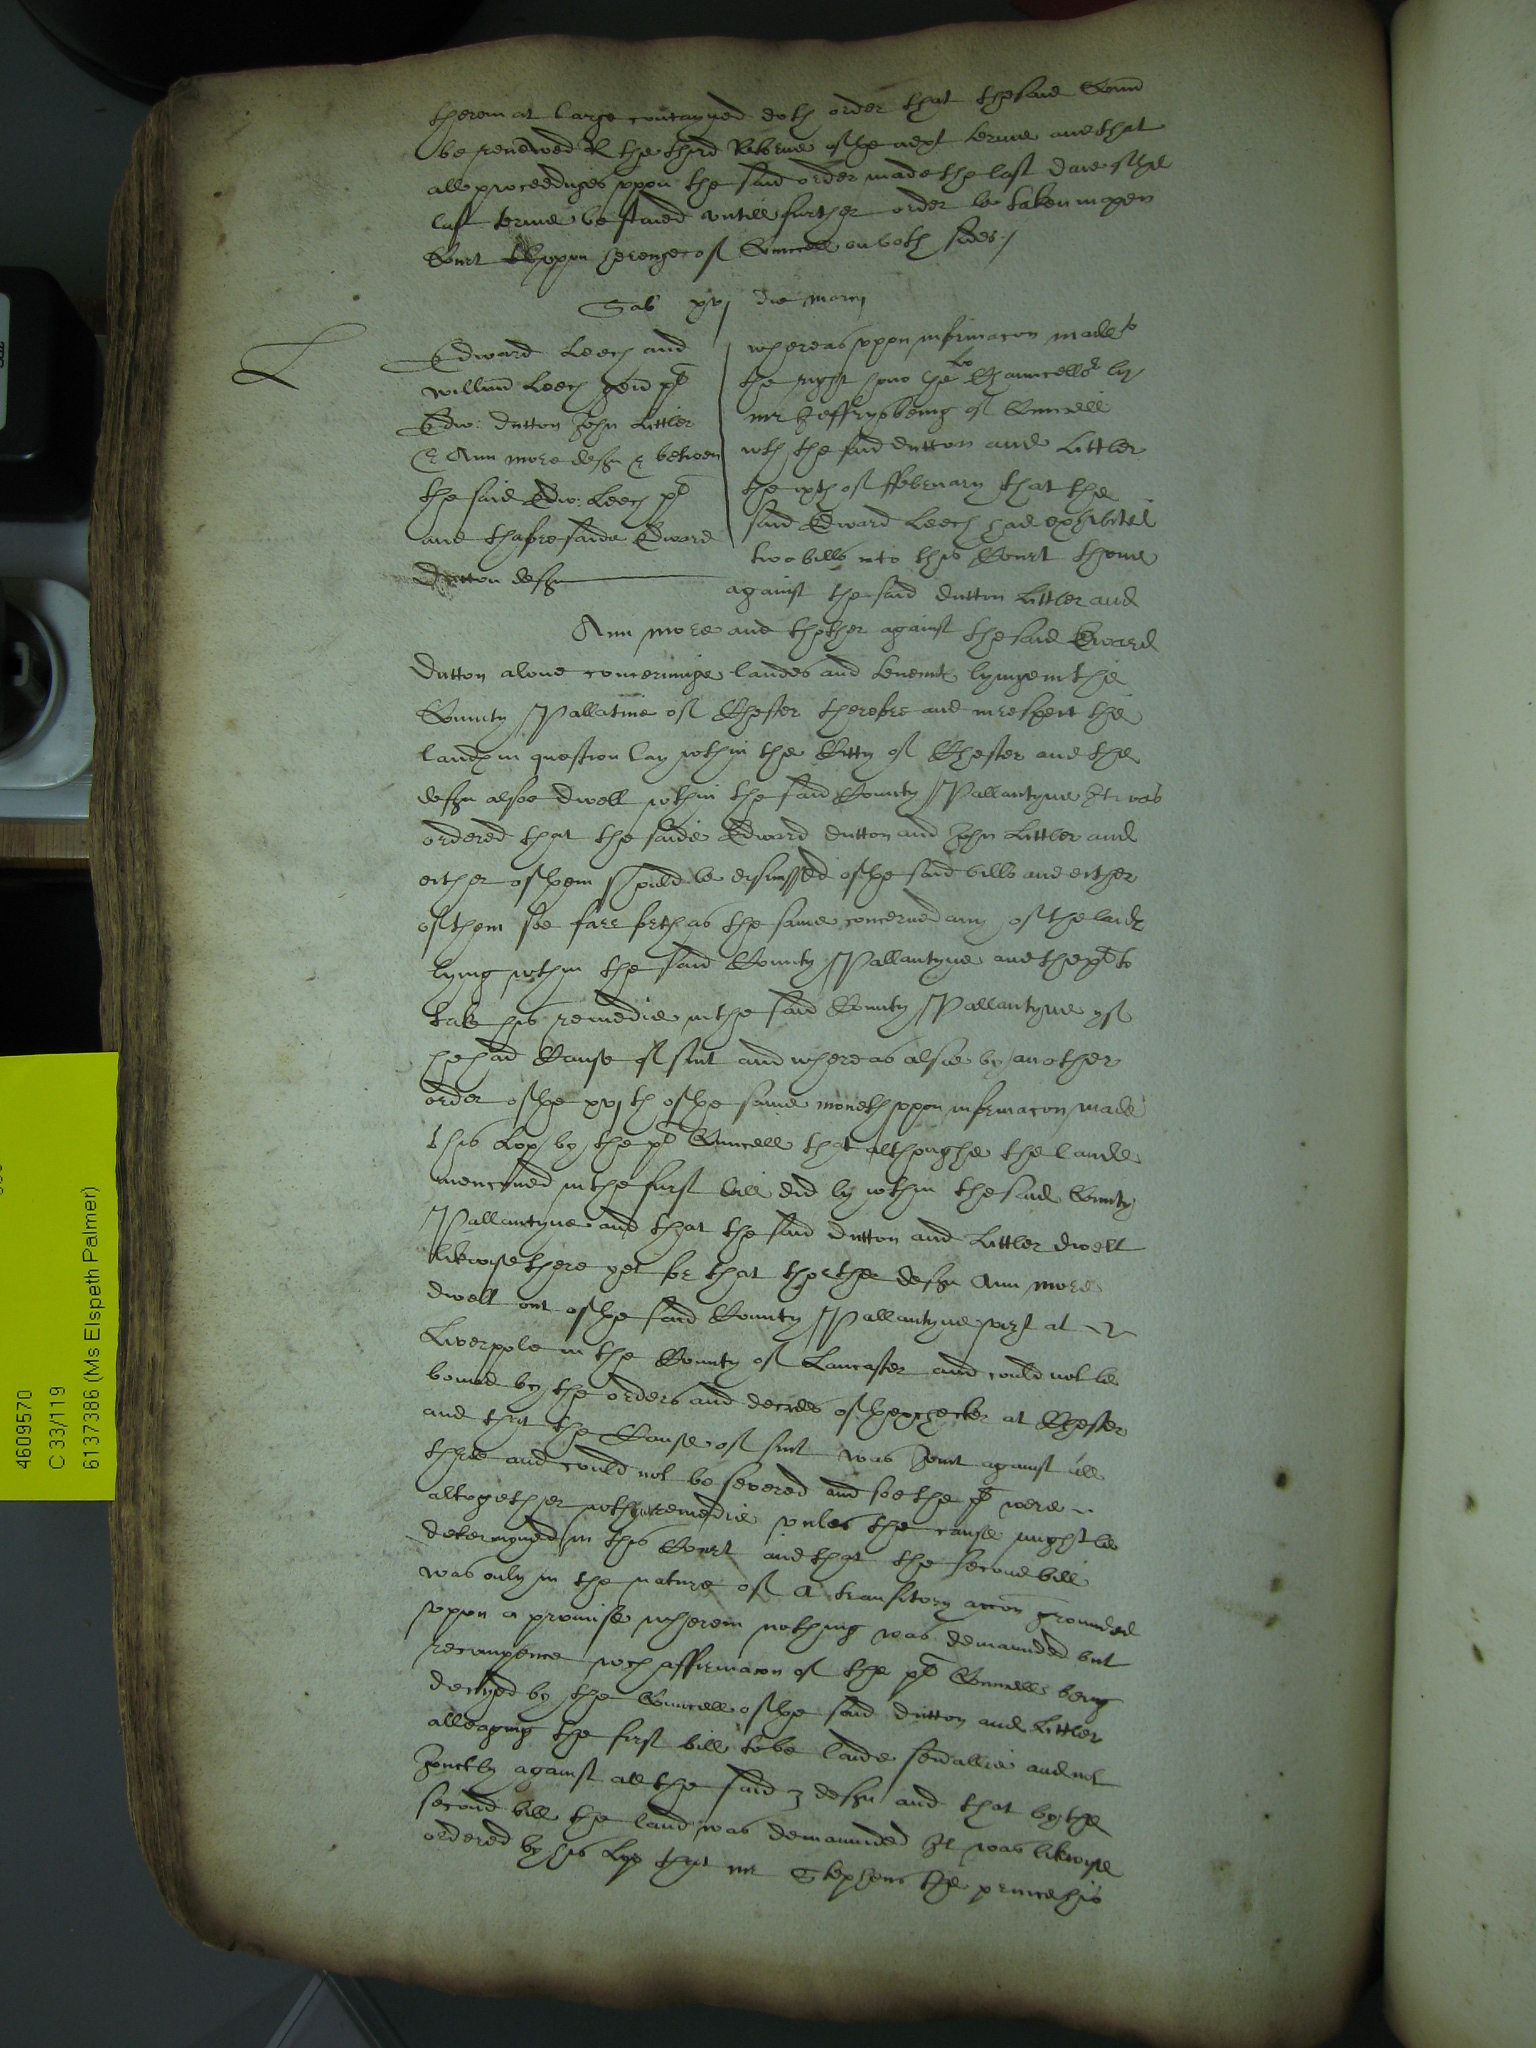 therein at large contayned doth order that the said Comn
be renewed R the third Retorne of the next terme and that
all proceedinges vppon the said order made the last daie of the
last terme be staied vntill further order be taken in open
Court vppon hereinge of Councell on both sides /
Sab xvj die marcij
L
Edward Leech and
William Leech gen pl
Edw: dutton John Littler
& Ann more defn & betwen
the said Edw: Leech pl
and thaforesaide Edward
Dutton defn
whereas vppon informacon made to
the right hono the Lo Chauncellor by
mr Jeffrys being of Councell
wth the said dutton and Littler
the ixth of ffebruary that the
said Edward Leech had exhibited
two bills into this Court thone
against the said dutton Littler and
Ann more and thother against the said Edward
dutton alone concerninge landes and tenemts lyinge in the
County Pallatine of Chester therefore and in respect the
landes in question lay within the Citty of Chester and the
defn alsoe dwell wthin the said County Pallantyne It was
ordered that the saide Edward dutton and John Littler and
either of them should be dismissed of the said bills and either
of them soe farr forth as the same concerned any of the landes
lying wthin the said County Pallantyne and the pl to
take his remedie in the said County Pallantyne yf
he had Cause of suit and whereas alsoe by another
order of the xvjth of the same moneth vppon informacon made
this Lop by the pl Councell that althoughe the lande
mencioned in the first bill did ly wthin the said County
Pallantyne and that the said dutton and Littler dwelt
likewise there yet for that thother defn Ann more
dwelt out of the said County Pallantyne viz at
Liverpole in the County of Lancaster and could not be
bound by the orders and decrees of thexchecker at Chester
and that the Cause of suit was Joint against all
three and could not be severed and soe the pl were
altogether wthout remedie vnles the cause might be
determyned in this Court and that the second bill
was only in the nature of a transitory accon grounded
vppon a promise wherein nothing was demaunded but
recompence wch affirmacon of the pl Councell being
denyed by the Councell of the said dutton and Littler
alleaging the first bill to be laide severallie and not
Joinctly against all the said 3 defn and that by the
second bill the land was demaunded It was likewise
ordered by his Lop that mr Stephens the prince his
4609570
C 33/119
6137386 (Ms Elspeth Palmer)